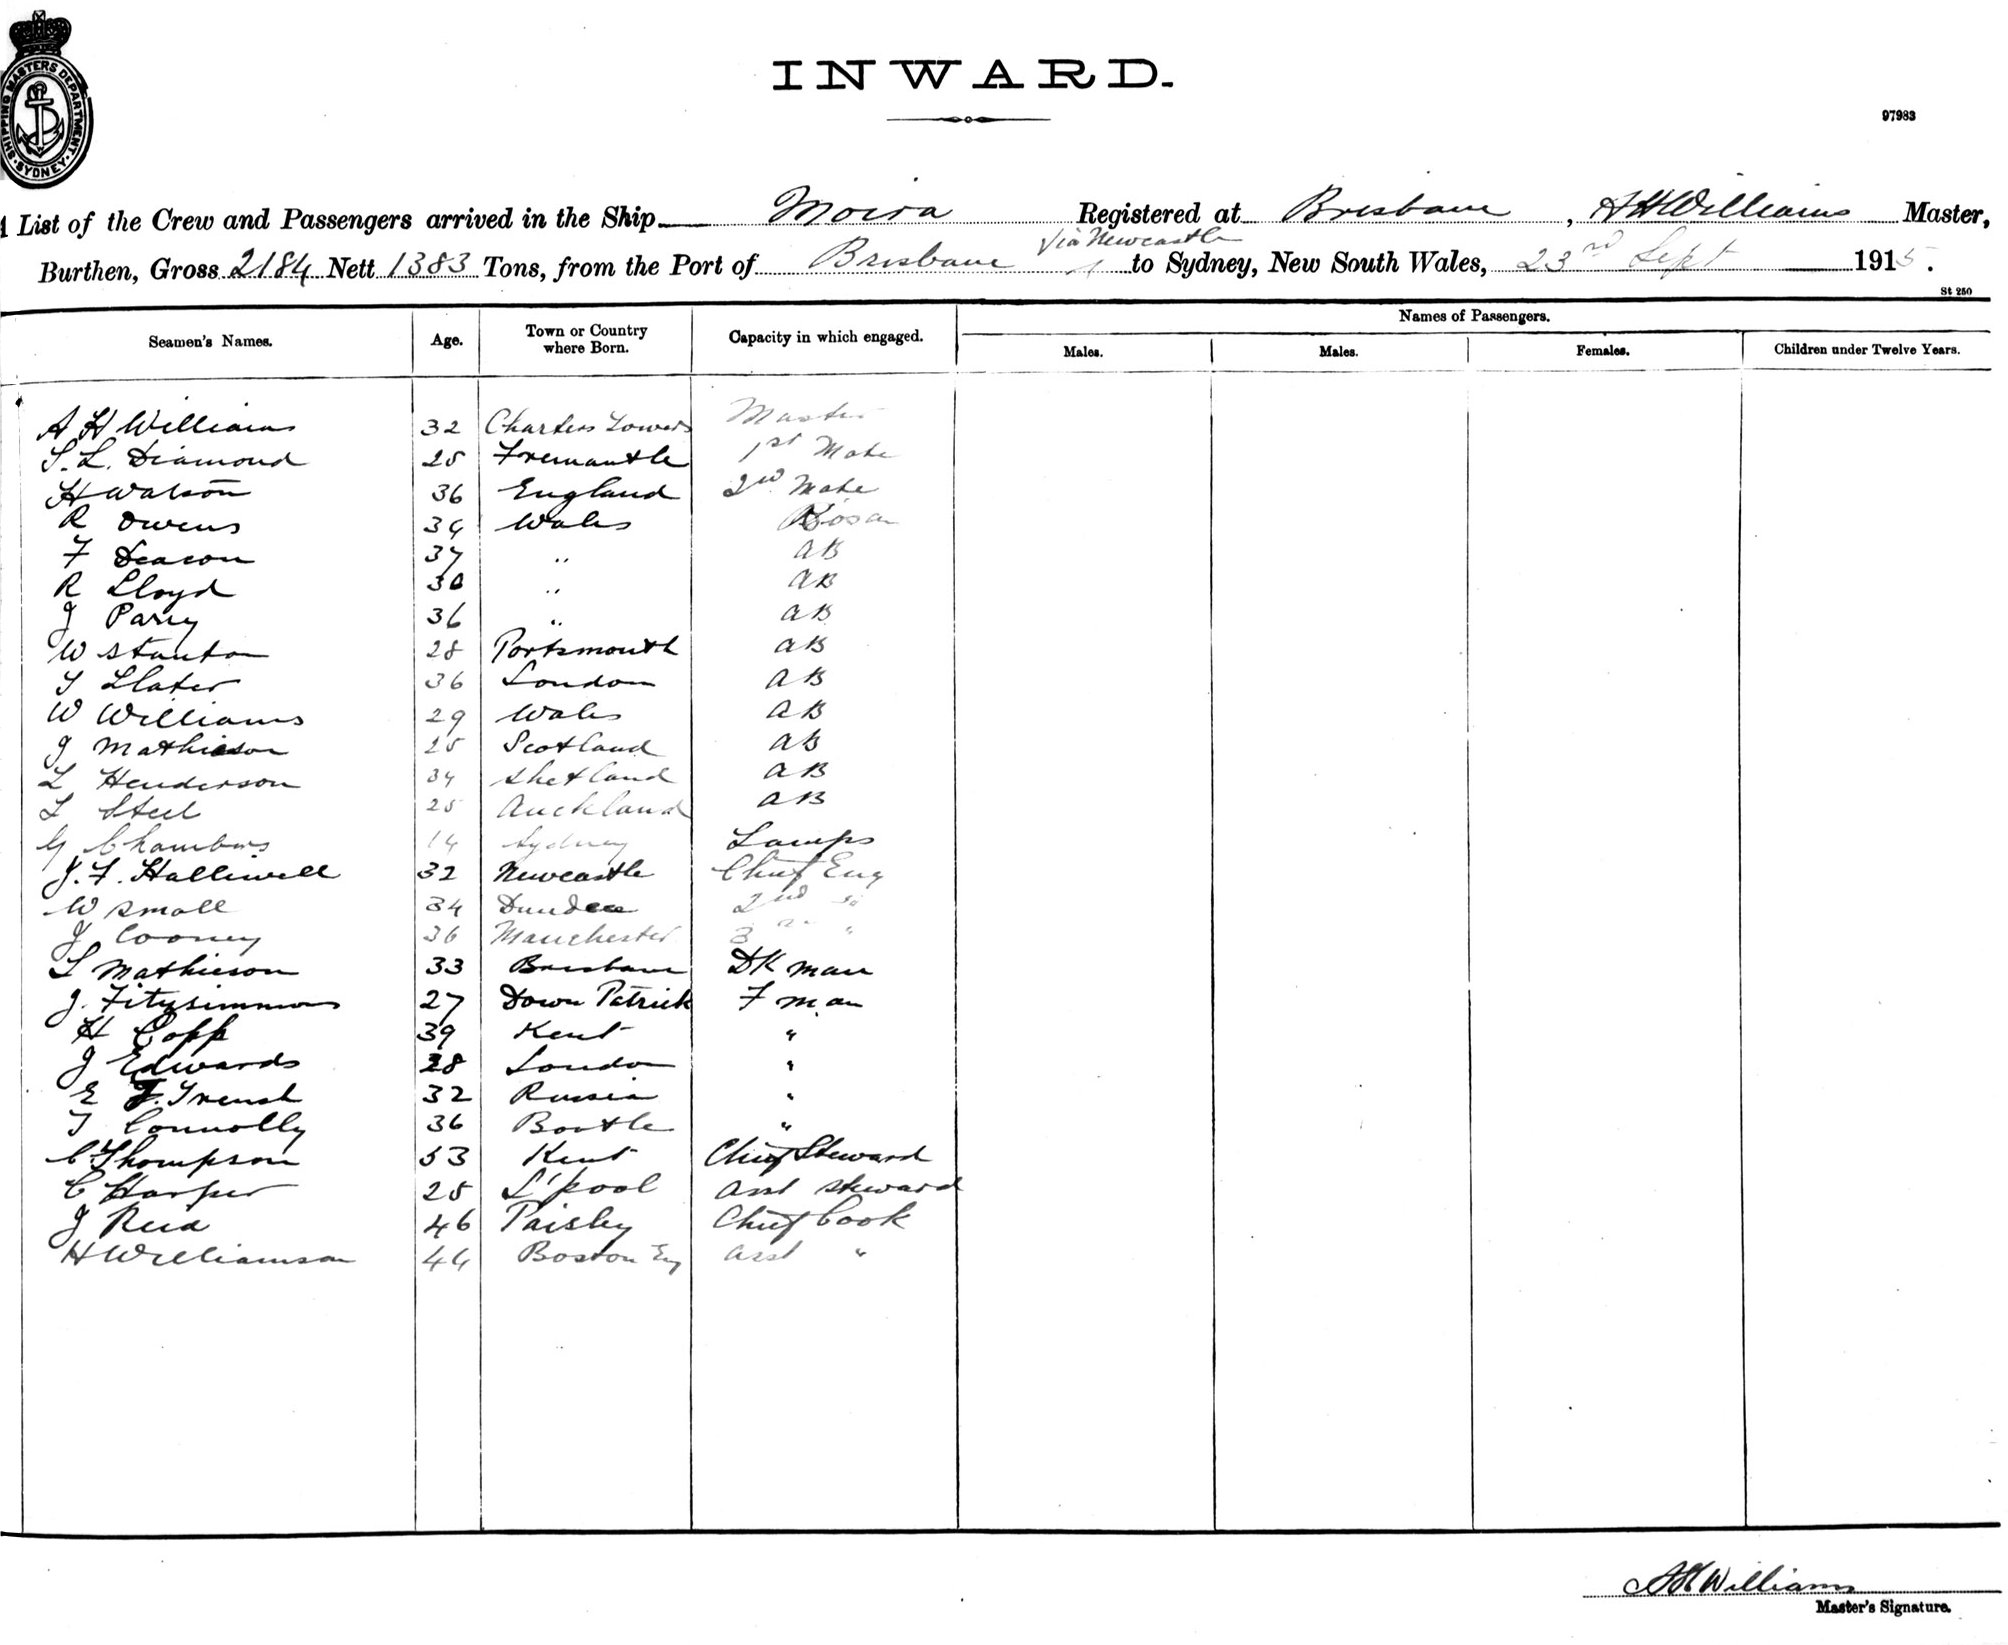 SHIPPING MASTERS DEPARTMENT · SYDNEY ·
INWARD.
97983
A List of the Crew and Passengers arrived in the Ship Moira Registered at Brisbane, A H Williams Master,
via Newcastle
Burthen, Gross 2184 Nett 1383 Tons, from the Port of Brisbane to Sydney, New South Wales, 23rd Sept 1915.
St 250
Seamen's Names. Age. Town or Country where Born. Capacity in which engaged. Names of Passengers.
Males. Males. Females. Children under Twelve Years.
A H Williams 32 Charters Towers Master
S. L. Diamond 25 Fremantle 1st Mate
H Watson 36 England 2nd Mate
R Owens 34 Wales Bosan
F Deacon 37 " AB
R Lloyd 30 " AB
J Parry 36 " AB
W Stanton 28 Portsmouth AB
T Slater 36 London AB
W Williams 29 Wales AB
J Mathieson 25 Scotland AB
L Henderson 34 Shetland AB
L Steel 25 Auckland AB
G Chambers 14 Sydney Lamps
J. F. Halliwell 32 Newcastle Chief Eng
W Small 34 Dundee 2nd "
J Cooney 36 Manchester 3rd "
L Mathieson 33 Brisbane DK man
J. Fitzsimmons 27 Down Patrick F man
H Copp 39 Kent "
J Edwards 28 London "
E F. Trensh 32 Russia "
T Connolly 36 Bootle "
C Thompson 53 Kent Chief Steward
C Harper 25 L'pool Asst Steward
J Reid 46 Paisley Chief Cook
H Williamson 44 Boston Eng Asst "
A H Williams
Master's Signature.